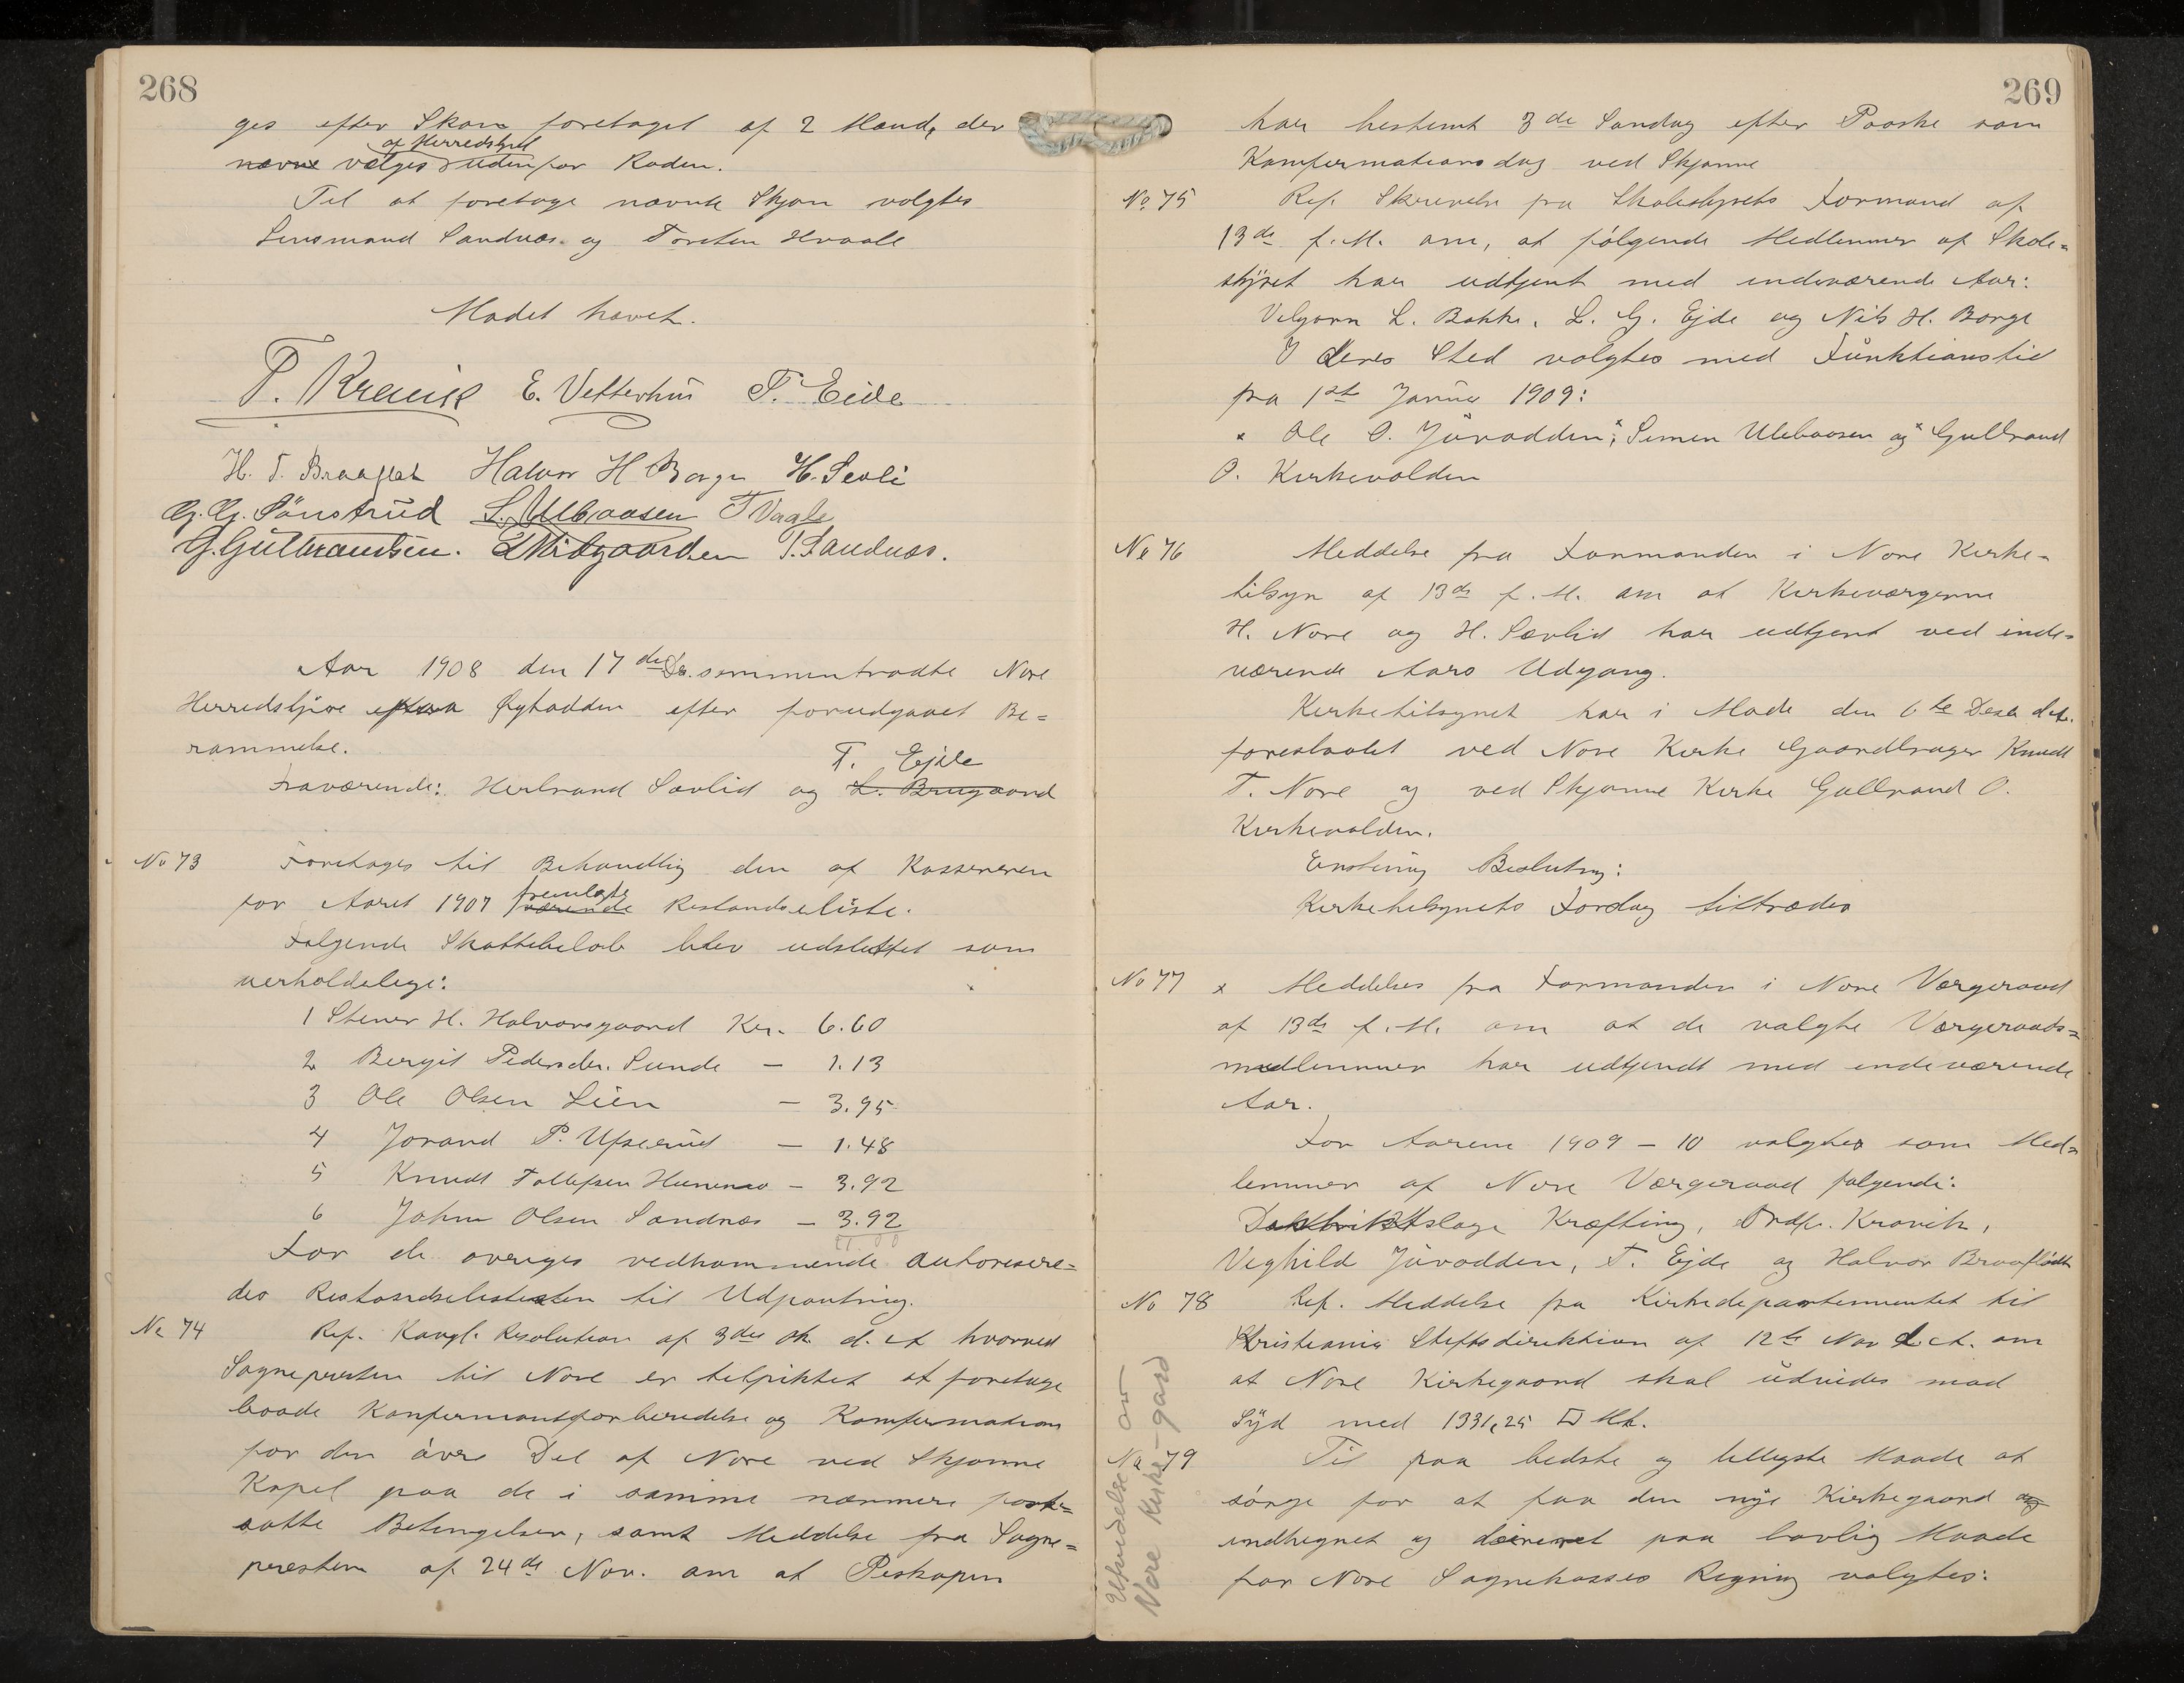 268
ges efter Skøn foretaget af 2 Mænd, der
af Herredstyret
nævne vælges udenfor Raden.
Til at foretage nævnte Skjøn valgtes
Lensmand Sandnæs og Torsten Hvaale
Mødet hævet.
T. Kravik E. Vetterhus T. Eide
H. T. Braaflat Halvor H Borge H. Sevli
G. G. Sönstrud S. Ulbaasen T Vaale
G. Gulbrandsen. E Midgaarden T. Sandnæs.
Aar 1908 den 17de De. sammentraadte Nore
Herredstyre paa Öyhadden efter forudgaaet Be=
rammelse.
T. Ejde
Fraværende: Herbrand Sævlid og L. Brugaard
No 73 Foretages til Behandlig den af Kassereren
fremlagte
for Aaret 1907 værende Restandseliste.
Følgende Skattebeløb blev udslettet som
uerholdelige:
1 Stener H. Halvorsgaard Kr. 6.60
2 Bergit Pedersdr. Sunde — 1.13
3 Ole Olsen Lien — 3.95
4 Jorand P. Ufserud — 1.48
5 Knudt Tollefsen — 3.92
6 John Olsen Sandnæs — 3.92
For de øvriges vedkommende autorisere=
des Restandselisten til Udpantning.
No 74 Ref. Kongl. Resolution af 3die ok. d. A hvorved
Sognepresten til Nore er tilpliktet at foretage
baade Konfirmantforberedelse og Konfirmation
for den övre Del af Nore ved Skjønne
Kapel paa de i samme nærmere fast=
satte Betingelser, samt Meddelse fra Sogne=
presten af 24de Nov. om at Biskopen
269
har bestemt 3de Søndag efter Paaske som
Konfirmationsdag ved Skjønne
No 75 Ref. Skrivelse fra Skolestyrets Formand af
13de f. M. om, at følgende Medlemmer af Skole=
styret har udtjent med indeværende Aar:
Velgorn L. Bakke, L. G. Ejde og Nils H. Borge
I deres Sted valgtes med Funktionstid
fra 1ste Januar 1909:
x Ole O. Juvodden, x Simen Ulebaasen og x Gulbrand
O. Kirkevolden
No 76 Meddelse fra Formanden i Nore Kirke=
tilsyn af 13de f. M. om at Kirkeværgerne
H. Nore og H. Sævlid har udtjent ved inde=
værende Aars Udgang.
Kirketilsynet har i Møde den 6te Desb d.A.
foreslaaet ved Nore Kirke Gaardbruger Knudt
T. Nore og ved Skjønne Kirke Gulbrand O.
Kirkevolden.
Enstemig Beslutnig:
Kirketilsynets Forslag tiltrædes
No 77 x Meddelses fra Formanden i Nore Værgeraad
af 13de f. M. om at de valgte Værgeraads=
medlemmer har udtjendt med indeværende
Aar.
For Aarene 1909 – 10 valgtes som Med=
lemmer af Nore Værgeraad følgende:
Distriktslæge Kræfting, Ordf. Kravik,
Veghild Juvodden, T. Ejde og Halvor Braaflädt
No 78 Ref. Meddelse fra Kirkedepartementet til
Kristiania Stiftsdirektion af 12te Nov d. A. om
at Nore Kirkegaard skal udvides mod
Syd med 1331,25 □ Mt.
No 79 Til paa bedste og billigste Maade at
sörge for at faa den nye Kirkegaard og
indhegnet og dreineret paa lovlig Maade
for Nore Sognekasses Regning valgtes:
Utvidelse av
Nore Kirke-gard